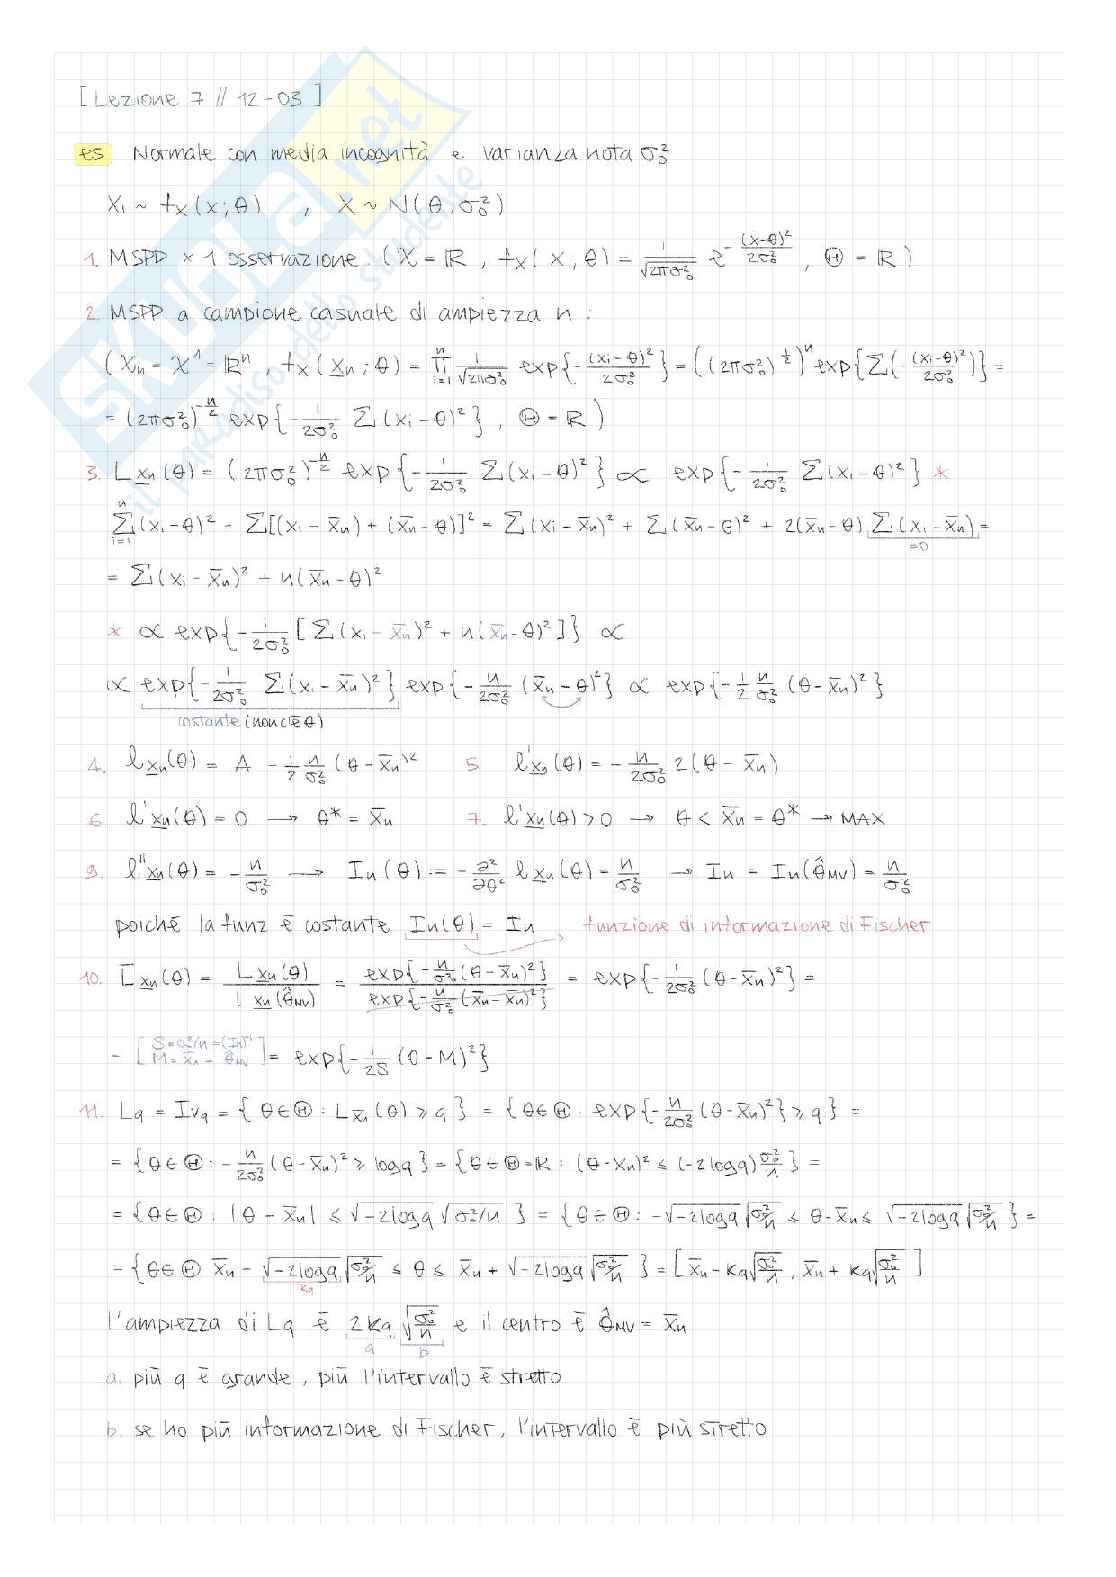 [Lezione 7 // 12-03]
es Normale con media incognità e varianza nota σ₀²
Xᵢ ~ fₓ(x;θ) , X ~ N(θ,σ₀²)
1. MSPD x 1 osservazione: (X = ℝ, fₓ(x,θ) = 1/√(2πσ₀²) e^(-(x-θ)²/(2σ₀²)), Θ = ℝ)
2. MSPP a campione casuale di ampiezza n:
(Xₙ = X^n = ℝⁿ, fₓ(xₙ;θ) = Π_{i=1}^n 1/√(2πσ₀²) exp{-(xᵢ-θ)²/(2σ₀²)} = ((2πσ₀²)^(1/2))ⁿ exp{Σ(-(xᵢ-θ)²/(2σ₀²))} =
= (2πσ₀²)^(-n/2) exp{-1/(2σ₀²) Σ(xᵢ-θ)²}, Θ = ℝ)
3. L_xₙ(θ) = (2πσ₀²)^(-n/2) exp{-1/(2σ₀²) Σ(xᵢ-θ)²} ∝ exp{-1/(2σ₀²) Σ(xᵢ-θ)²} *
Σ_{i=1}^n (xᵢ-θ)² = Σ[(xᵢ - x̄ₙ) + (x̄ₙ-θ)]² = Σ(xᵢ-x̄ₙ)² + Σ(x̄ₙ-θ)² + 2(x̄ₙ-θ) Σ(xᵢ-x̄ₙ) =
=0
= Σ(xᵢ-x̄ₙ)² + n(x̄ₙ-θ)²
* ∝ exp{-1/(2σ₀²) [Σ(xᵢ-x̄ₙ)² + n(x̄ₙ-θ)²]} ∝
∝ exp{-1/(2σ₀²) Σ(xᵢ-x̄ₙ)²} exp{-n/(2σ₀²) (x̄ₙ-θ)²} ∝ exp{-1/2 n/σ₀² (θ-x̄ₙ)²}
costante (non c'è θ)
4. l_xₙ(θ) = A - 1/2 n/σ₀² (θ-x̄ₙ)² 5 l'_xₙ(θ) = -n/(2σ₀²) 2(θ-x̄ₙ)
6 l'_xₙ(θ) = 0 → θ* = x̄ₙ 7. l'_xₙ(θ) > 0 → θ < x̄ₙ = θ* → MAX
9. l''_xₙ(θ) = -n/σ₀² → Iₙ(θ) := -∂²/∂θ² l_xₙ(θ) = n/σ₀² → Iₙ = Iₙ(θ̂_MV) = n/σ₀²
poiché la funz è costante Iₙ(θ) = Iₙ funzione di informazione di Fischer
10. L̄_xₙ(θ) = L_xₙ(θ)/L_xₙ(θ̂_MV) = exp{-n/σ₀² (θ-x̄ₙ)²}/exp{-n/σ₀² (x̄ₙ-x̄ₙ)²} = exp{-1/(2σ₀²) (θ-x̄ₙ)²} =
= [S = σ₀²/n = (Iₙ)⁻¹
M = x̄ₙ = θ̂_MV] = exp{-1/(2S) (θ-M)²}
11. Lq = IVq = {θ∈Θ : L_x̄ₙ(θ) ≥ q} = {θ∈Θ : exp{-n/(2σ₀²) (θ-x̄ₙ)²} ≥ q} =
= {θ∈Θ : -n/(2σ₀²) (θ-x̄ₙ)² ≥ log q} = {θ∈Θ=ℝ : (θ-xₙ)² ≤ (-2log q) σ₀²/n} =
= {θ∈Θ : |θ-x̄ₙ| ≤ √(-2log q) √(σ²/n)} = {θ∈Θ : -√(-2log q) √(σ₀²/n) ≤ θ-x̄ₙ ≤ √(-2log q) √(σ₀²/n)} =
= {θ∈Θ x̄ₙ - √(-2log q) √(σ₀²/n) ≤ θ ≤ x̄ₙ + √(-2log q) √(σ₀²/n)} = [x̄ₙ - kq√(σ₀²/n), x̄ₙ + kq√(σ₀²/n)]
kq
l'ampiezza di Lq è 2kq √(σ₀²/n) e il centro è θ̂_MV = x̄ₙ
a b
a. più q è grande, più l'intervallo è stretto
b. se ho più informazione di Fischer, l'intervallo è più stretto
SKUOLA.net
il paradiso dello studente